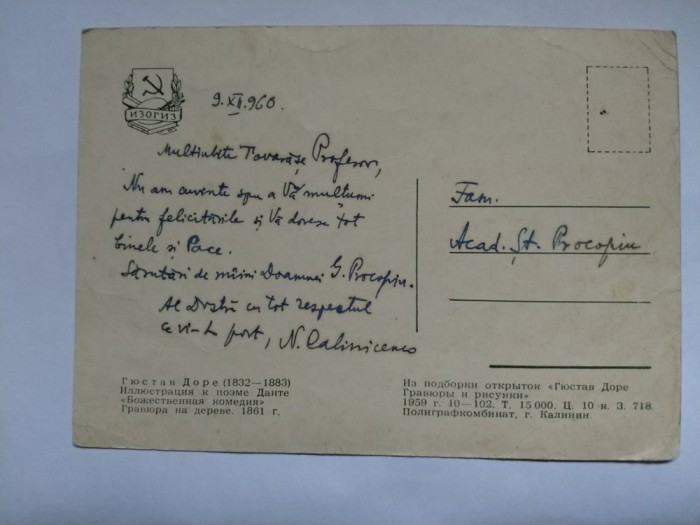 ИЗОГИЗ
9.XII.960.
Multiubite Tovarășe Profesor,
Nu am cuvinte spre a Vă mulțumi
pentru felicitările și Vă doresc tot
binele și Pace.
Sărutări de mâini Doamnei G. Procopiu.
Al Dvstră cu tot respectul
ce vi-L port, N. Calinicenco
Fam.
Acad. Șt. Procopiu
Гюстав Доре (1832—1883)
Иллюстрация к поэме Данте
«Божественная комедия»
Гравюра на дереве. 1861 г.
Из подборки открыток «Гюстав Доре
Гравюры и рисунки»
1959 г. 10—102. Т. 15 000. Ц. 10 к. З. 718.
Полиграфкомбинат, г. Калинин